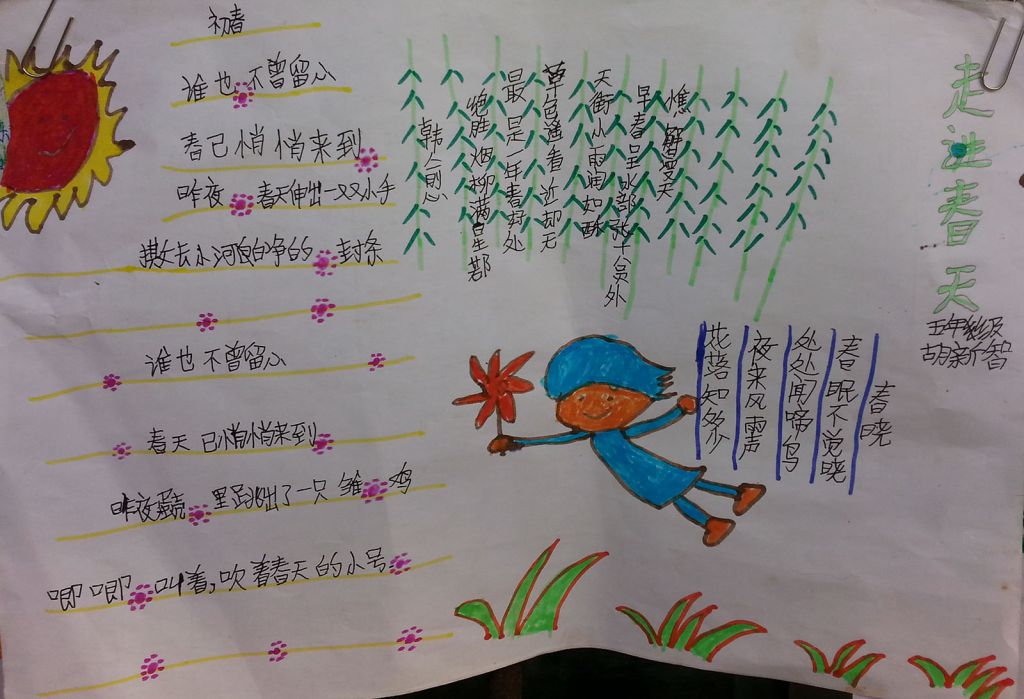 走进春天
五年级
胡新智
初春
谁也不曾留心
春已悄悄来到
昨夜 春天伸出一双小手
撕去小河白净的 封条
谁也不曾留心
春天已悄悄来到
昨夜 里跑出了一只雏鸡
唧唧叫着,吹着春天的小号
早春呈水部张十八员外
天街小雨润如酥
草色遥看近却无
最是一年春好处
绝胜烟柳满皇都
韩愈
春晓
春眠不觉晓
处处闻啼鸟
夜来风雨声
花落知多少